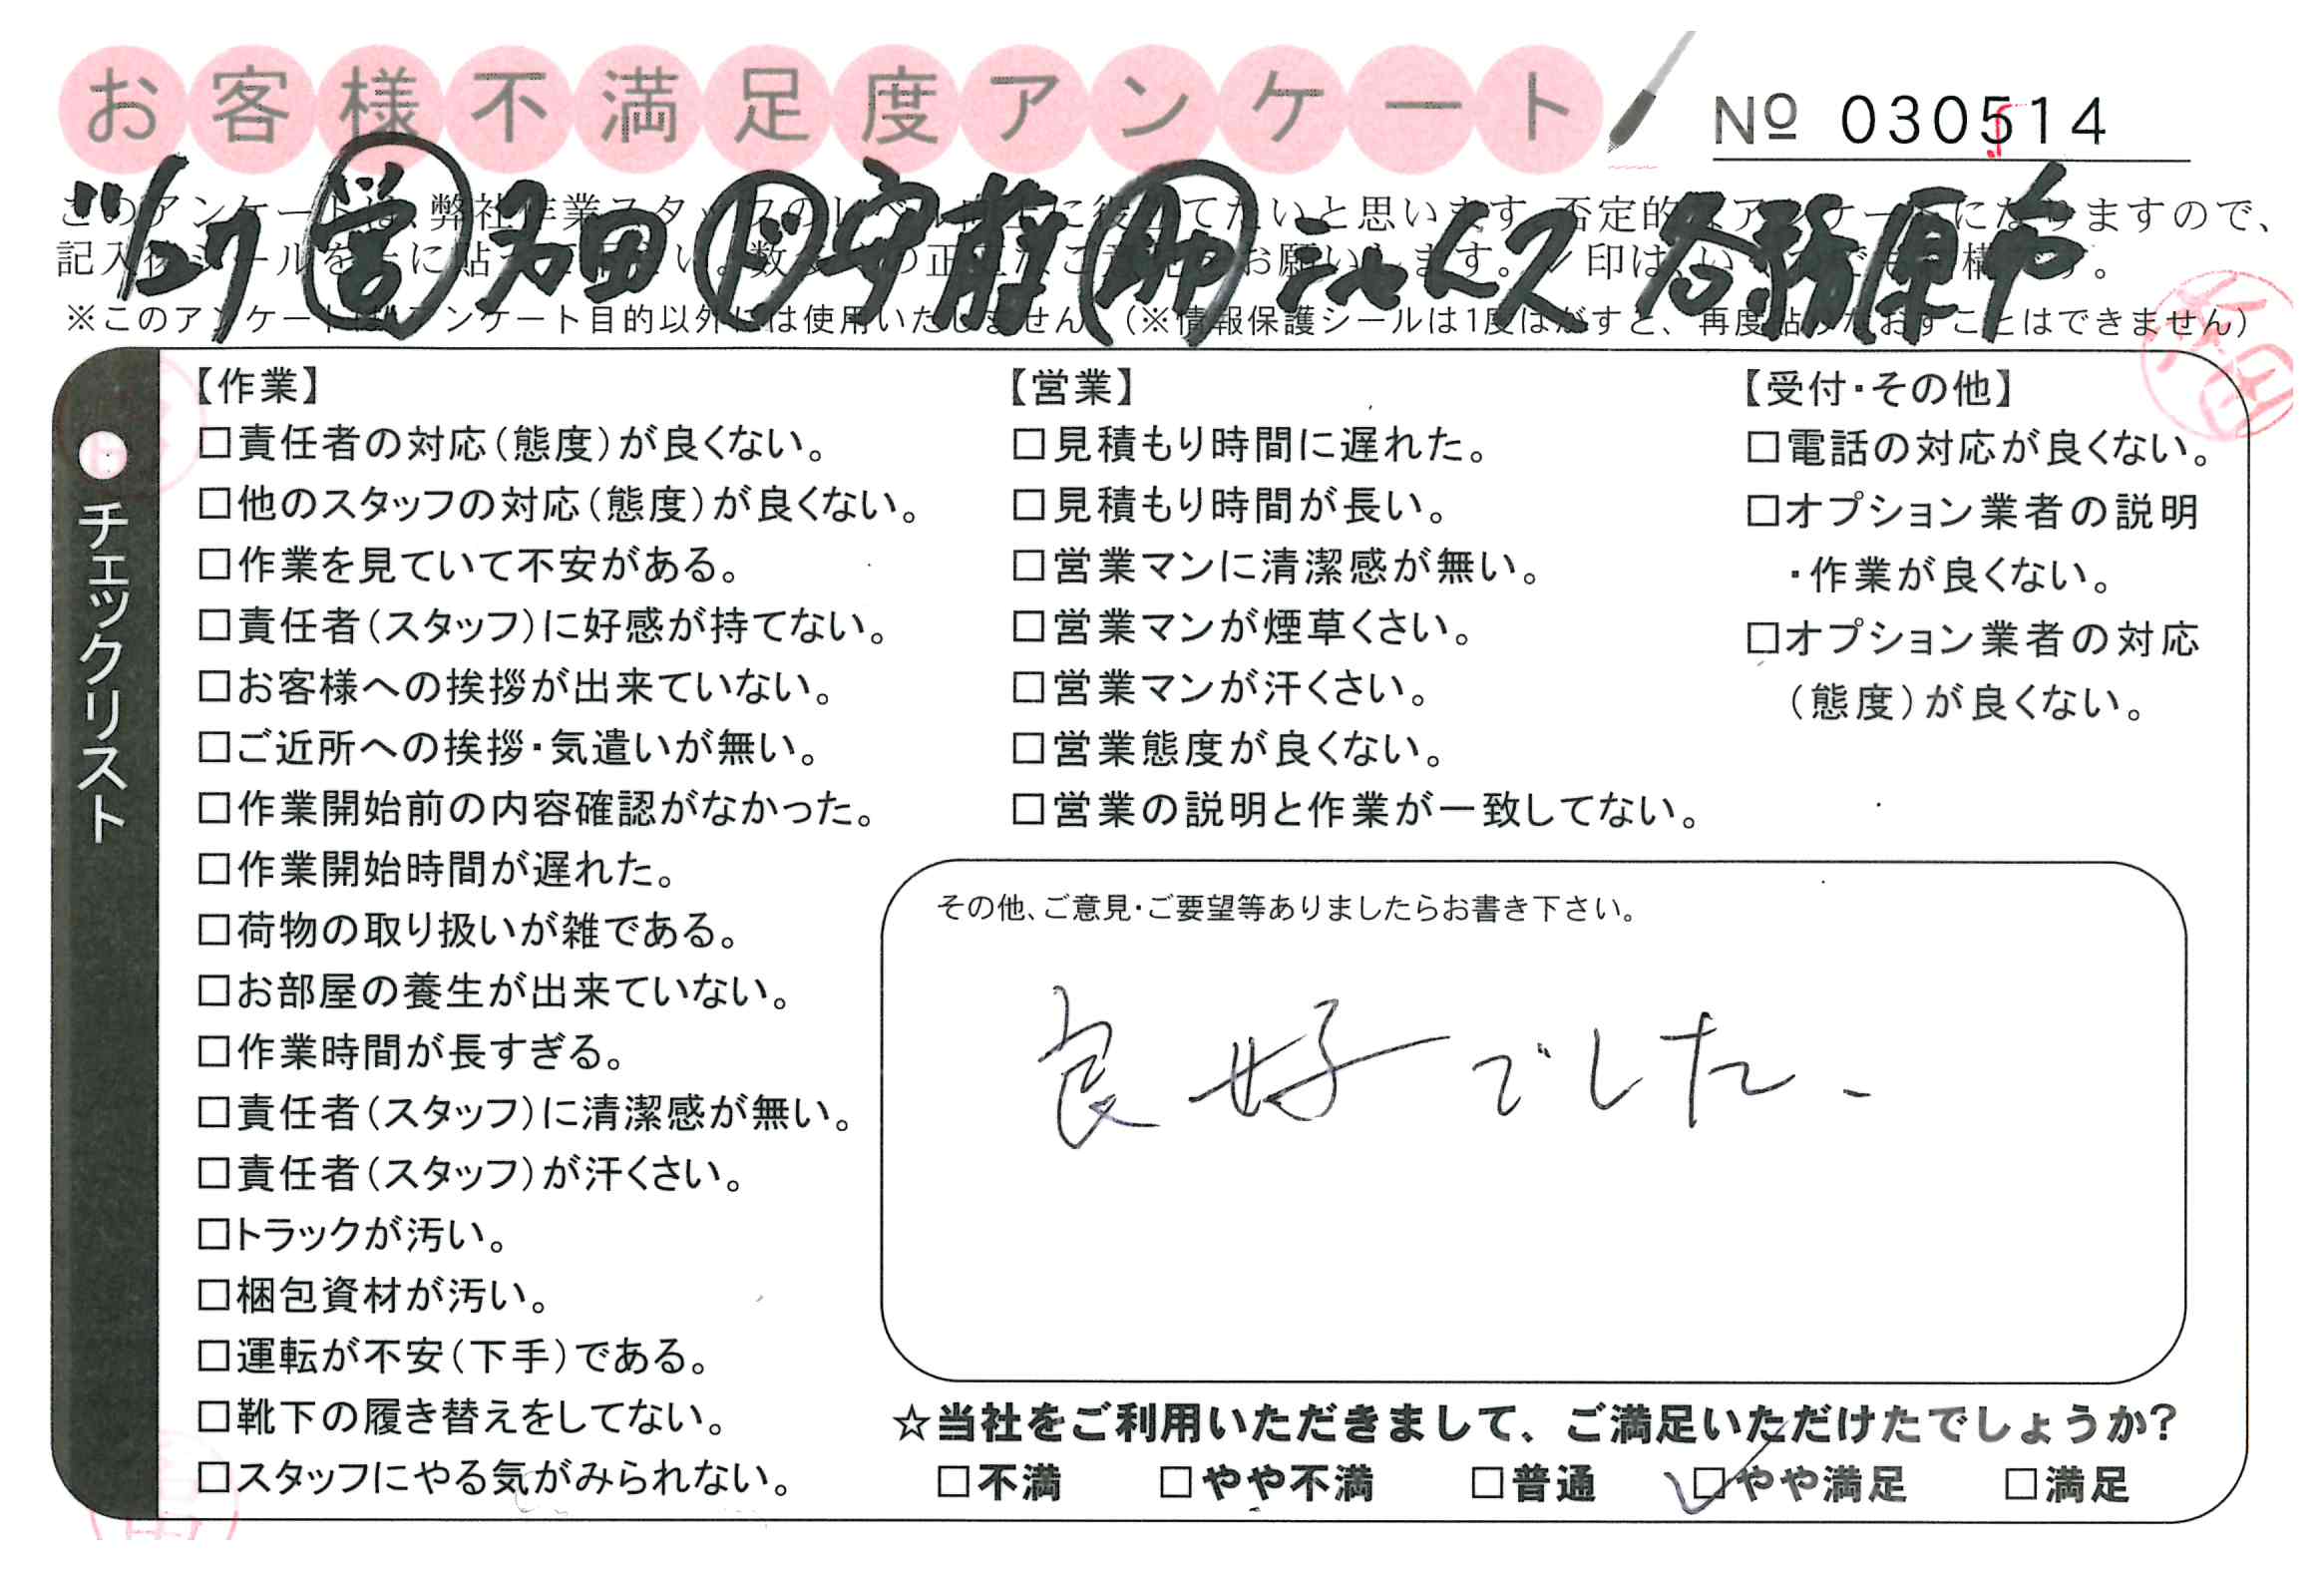 お客様不満足度アンケート
№ 030514
12/27 営 多田 ド 安藤 助 各務原市
※このアンケートは アンケート目的以外には使用いたしません。（※情報保護シールは1度はがすと、再度貼りなおすことはできません）
チェックリスト
【作業】
□責任者の対応（態度）が良くない。
□他のスタッフの対応（態度）が良くない。
□作業を見ていて不安がある。
□責任者（スタッフ）に好感が持てない。
□お客様への挨拶が出来ていない。
□ご近所への挨拶・気遣いが無い。
□作業開始前の内容確認がなかった。
□作業開始時間が遅れた。
□荷物の取り扱いが雑である。
□お部屋の養生が出来ていない。
□作業時間が長すぎる。
□責任者（スタッフ）に清潔感が無い。
□責任者（スタッフ）が汗くさい。
□トラックが汚い。
□梱包資材が汚い。
□運転が不安（下手）である。
□靴下の履き替えをしてない。
□スタッフにやる気がみられない。
【営業】
□見積もり時間に遅れた。
□見積もり時間が長い。
□営業マンに清潔感が無い。
□営業マンが煙草くさい。
□営業マンが汗くさい。
□営業態度が良くない。
□営業の説明と作業が一致してない。
【受付・その他】
□電話の対応が良くない。
□オプション業者の説明
・作業が良くない。
□オプション業者の対応
（態度）が良くない。
その他、ご意見・ご要望等ありましたらお書き下さい。
良好でした、
☆当社をご利用いただきまして、ご満足いただけたでしょうか？
□不満 □やや不満 □普通 ☑やや満足 □満足